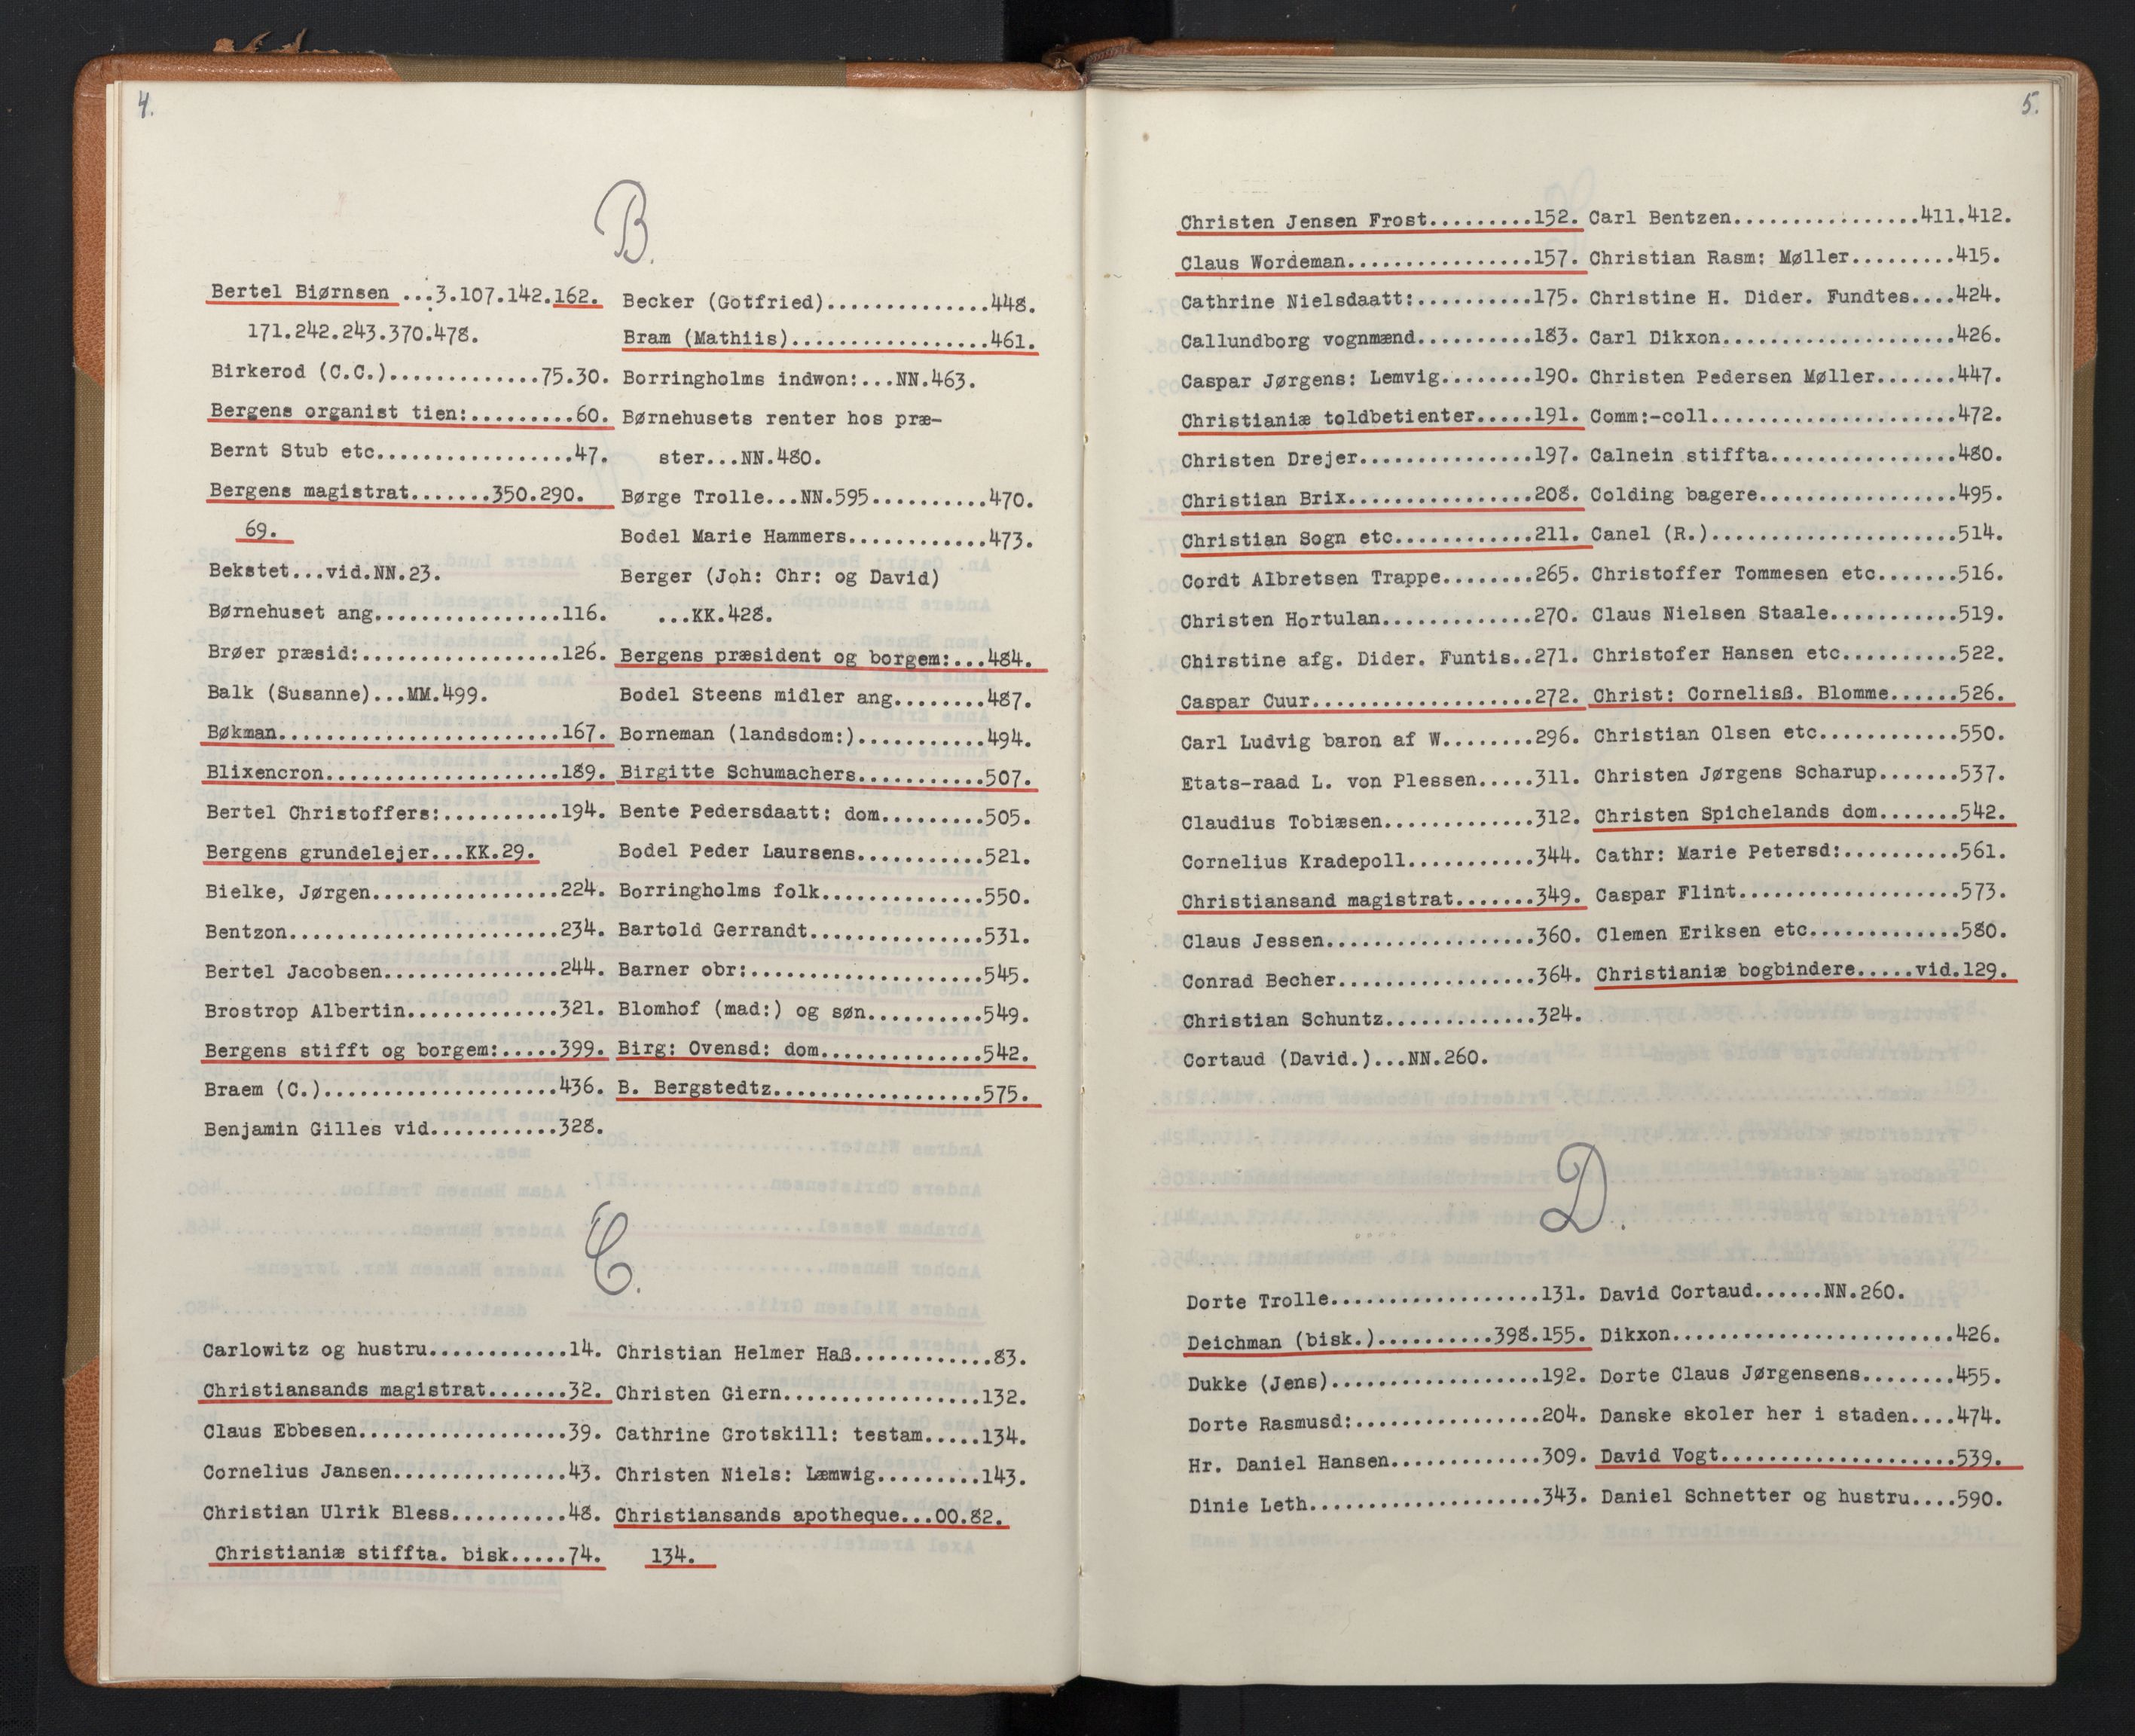 4.
B.
Bertel Biørnsen ...3.107.142.162.
171.242.243.370.478.
Birkerod (C.C.).............75.30.
Bergens organist tien:.........60.
Bernt Stub etc.................47.
Bergens magistrat.......350.290.
69.
Bekstet...vid.NN.23.
Børnehuset ang................116.
Brøer præsid:.................126.
Balk (Susanne)...MM.499.
Bøkman........................167.
Blixencron....................189.
Bertel Christoffers:..........194.
Bergens grundelejer...KK.29.
Bielke, Jørgen................224.
Bentzon.......................234.
Bertel Jacobsen...............244.
Brostrop Albertin.............321.
Bergens stifft og borgem:.....399.
Braem (C.)....................436.
Benjamin Gilles vid...........328.
Becker (Gotfried)..............448.
Bram (Mathiis).................461.
Borringholms indwon:...NN.463.
Børnehusets renter hos præ-
ster...NN.480.
Børge Trolle...NN.595..........470.
Bodel Marie Hammers............473.
Berger (Joh: Chr: og David)
...KK.428.
Bergens præsident og borgem:...484.
Bodel Steens midler ang........487.
Borneman (landsdom:)...........494.
Birgitte Schumachers...........507.
Bente Pedersdaatt: dom.........505.
Bodel Peder Laursens...........521.
Borringholms folk..............550.
Bartold Gerrandt...............531.
Barner obr:....................545.
Blomhof (mad:) og søn..........549.
Birg: Ovensd: dom..............542.
B. Bergstedtz..................575.
C.
Carlowitz og hustru............14.
Christiansands magistrat.......32.
Claus Ebbesen..................39.
Cornelius Jansen...............43.
Christian Ulrik Bless..........48.
Christianiæ stiffta. bisk.....74.
Christian Helmer Haß............83.
Christen Giern.................132.
Cathrine Grotskill: testam.....134.
Christen Niels: Læmwig.........143.
Christiansands apotheque...OO.82.
134.
5.
Christen Jensen Frost.........152.
Claus Wordeman................157.
Cathrine Nielsdaatt:..........175.
Callundborg vognmænd..........183.
Caspar Jørgens: Lemvig........190.
Christianiæ toldbetienter.....191.
Christen Drejer...............197.
Christian Brix................208.
Christian Sogn etc............211.
Cordt Albretsen Trappe........265.
Christen Hortulan.............270.
Chirstine afg. Dider. Funtis..271.
Caspar Cuur...................272.
Carl Ludvig baron af W........296.
Etats-raad L. von Plessen.....311.
Claudius Tobiæsen.............312.
Cornelius Kradepoll...........344.
Christiansand magistrat.......349.
Claus Jessen..................360.
Conrad Becher.................364.
Christian Schuntz.............324.
Cortaud (David.)...NN.260.
Carl Bentzen................411.412.
Christian Rasm: Møller.........415.
Christine H. Dider. Fundtes....424.
Carl Dikxon....................426.
Christen Pedersen Møller.......447.
Comm:-coll.....................472.
Calnein stiffta................480.
Colding bagere.................495.
Canel (R.).....................514.
Christoffer Tommesen etc.......516.
Claus Nielsen Staale...........519.
Christofer Hansen etc..........522.
Christ: Cornelisß. Blomme......526.
Christian Olsen etc............550.
Christen Jørgens Scharup.......537.
Christen Spichelands dom.......542.
Cathr: Marie Petersd:..........561.
Caspar Flint...................573.
Clemen Eriksen etc.............580.
Christianiæ bogbindere.....vid.129.
D.
Dorte Trolle..................131.
Deichman (bisk.)..........398.155.
Dukke (Jens)..................192.
Dorte Rasmusd:................204.
Hr. Daniel Hansen.............309.
Dinie Leth....................343.
David Cortaud......NN.260.
Dikxon........................426.
Dorte Claus Jørgensens........455.
Danske skoler her i staden....474.
David Vogt....................539.
Daniel Schnetter og hustru....590.